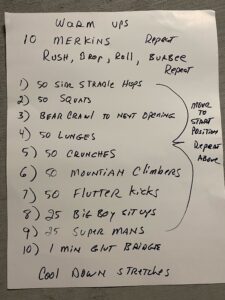 WARM UPS
10 MERKINS REPEAT
RUSH, DROP, ROLL, BURBEE
REPEAT
1) 50 SIDE STRADLE HOPS
2) 50 SQUATS
3) BEAR CRAWL TO NEXT OPENING
4) 50 LUNGES
5) 50 CRUNCHES
6) 50 MOUNTIAN CLIMBERS
7) 50 FLUTTER KICKS
8) 25 BIG BOY SITUPS
9) 25 SUPER MANS
10) 1 MIN GLUT BRIDGE
MOVE
TO
START
POSITION
REPEAT
ABOVE
COOL DOWN STRETCHES